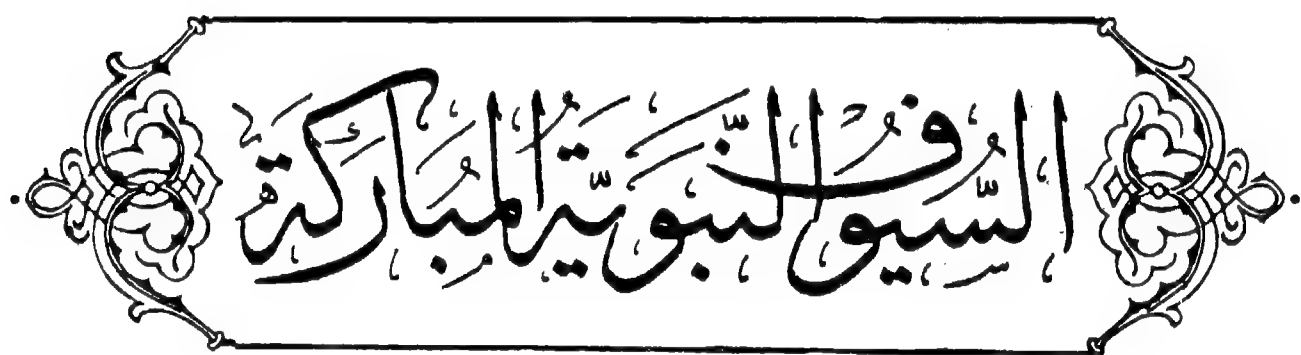 السُّيُوفُ النَّبَوِيَّةُ الْمُبَارَكَةُ